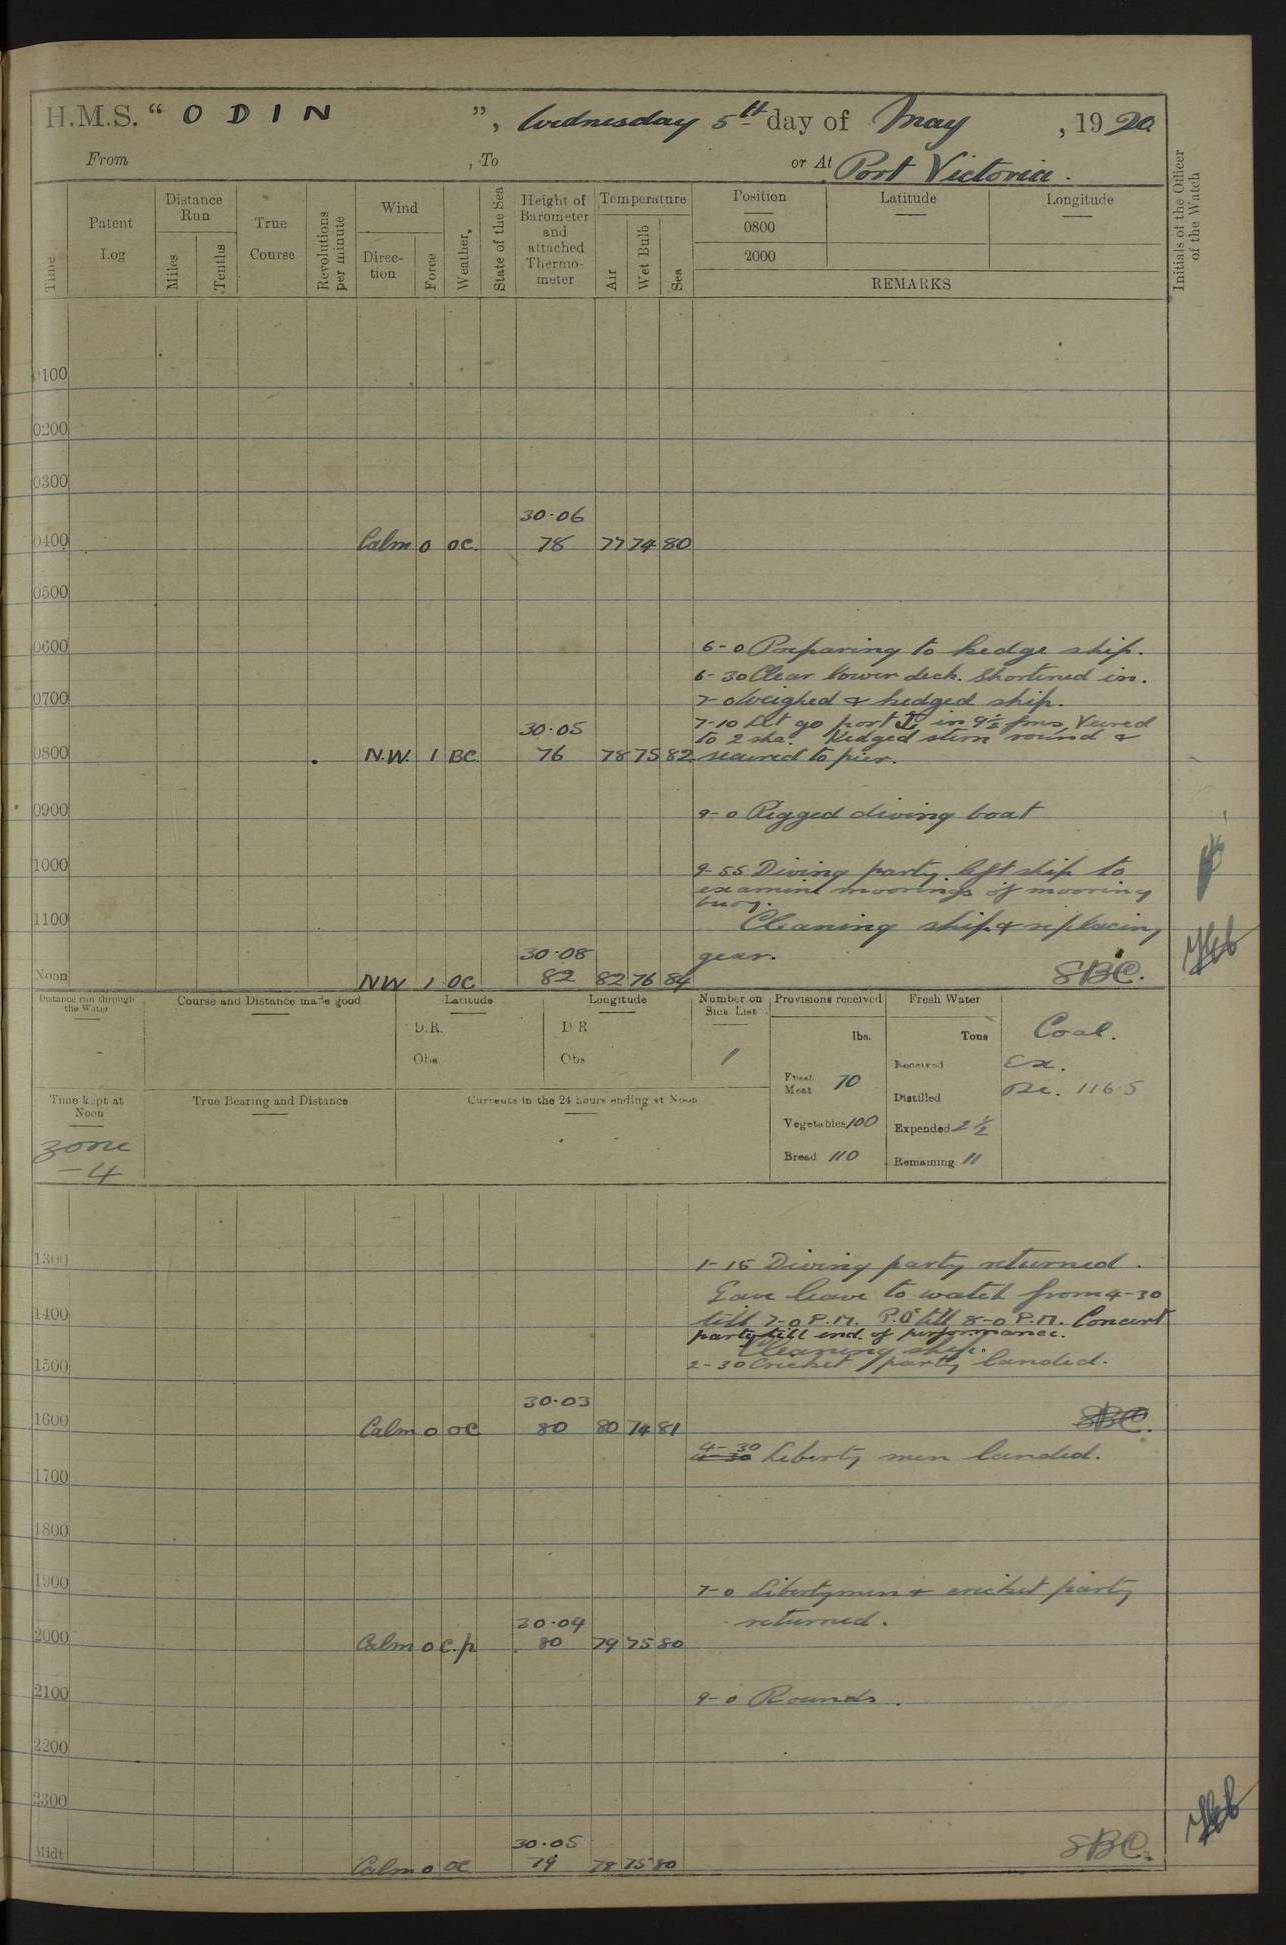 H.M.S. “ ODIN ”, Wednesday 5th day of May, 1920
From , To or At Port Victoria.
Time
Patent Log
Distance Run
Miles
Tenths
True Course
Revolutions per minute
Wind
Direction
Force
Weather
State of the Sea
Height of Barometer and attached Thermometer
Temperature
Air
Wet Bulb
Sea
Position
0800
2000
Latitude
Longitude
REMARKS
Initials of the Officer of the Watch
0100
0200
0300
30.06
0400 Calm 0 OC. 78 77 74 80
0500
0600 6-0 Preparing to kedge ship.
6-30 Clear lower deck. Shortened in.
0700 7-0 Weighed & kedged ship.
7-10 Let go port ⚓ in 9½ fms, Veered
30.05 to 2 sha. Kedged stern round &
0800 N.W. 1 BC 76 78 75 82 secured to pier.
0900 9-0 Rigged diving boat
1000 9-55 Diving party left ship to
examine moorings of mooring
buoy.
1100 Cleaning ship & replacing
30.08 gear.
Noon NW 1 OC 82 82 76 84 SBC.
Distance run through the Water
Course and Distance made good
Latitude
D.R.
Obs.
Longitude
D R
Obs
Number on Sick List
1
Provisions received
lbs.
Fresh Meat 70
Vegetables 100
Bread 110
Fresh Water
Tons
Received
Distilled
Expended 2½
Remaining 11
Coal.
Ex.
Re. 1165
Time kept at Noon
zone
-4
True Bearing and Distance
Currents in the 24 hours ending at Noon
1300 1-15 Diving party returned.
Gave leave to watch from 4-30
1400 till 7-0 P.M. P.O till 8-0 P.M. Concert
party till end of performance.
Cleaning ship.
1500 2-30 Cricket party landed.
30.03
1600 Calm 0 OC 80 80 74 81 SBC.
4-30
4-30 Liberty men landed.
1700
1800
1900 7-0 Libertymen & cricket party
30.04 returned.
2000 Calm 0 C.p 80 79 75 80
2100 9-0 Rounds.
2200
2300
30.05
Midt Calm 0 OC 79 78 75 80 SBC.